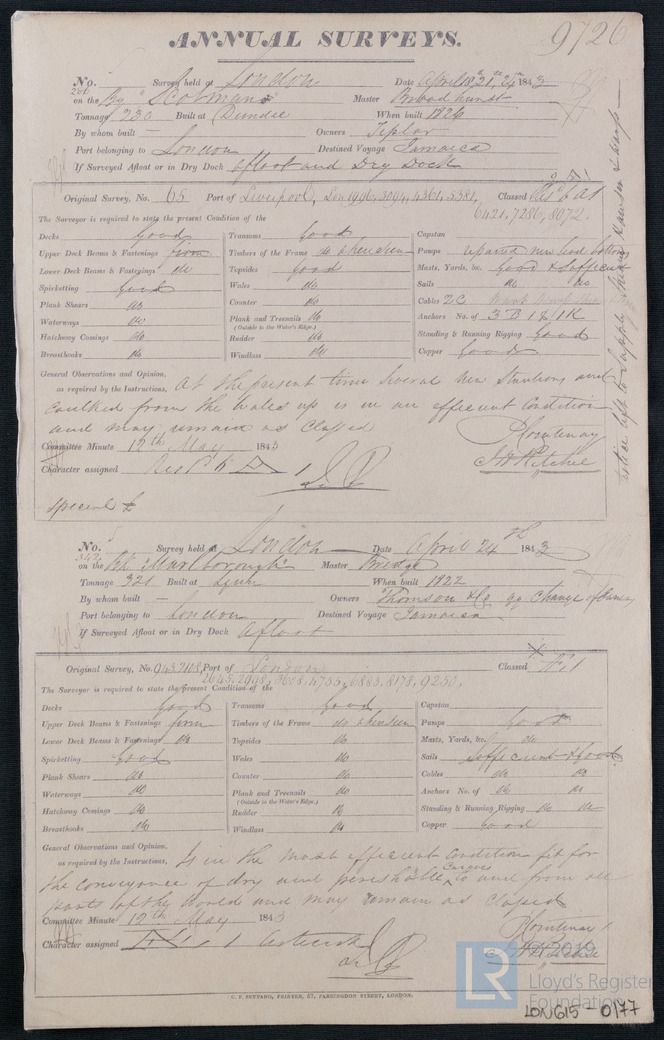 9726
ANNUAL SURVEYS.
No. Survey held at London Date April 18 21 & 25 1843
on the Bg "Scotman" Master Broadhurst
Tonnage 230 Built at Dundee When built 1824
By whom built — Owners Tiplar
Port belonging to London Destined Voyage Jamaica
If Surveyed Afloat or in Dry Dock afloat and Dry Dock
Original Survey, No. 65 Port of Liverpool, Lon 1996, 3094, 4361, 5381, Classed
6421, 7286, 8072.
The Surveyor is required to state the present Condition of the
Decks Good Transoms Good Capstan
Upper Deck Beams & Fastenings firm Timbers of the Frame do when seen Pumps repaired new lead bottoms
Lower Deck Beams & Fastenings do Topsides Good Masts, Yards, &c. Good & Sufficient
Spirketting Good Wales do Sails do do
Plank Shears do Counter do Cables 2C
Waterways do Plank and Treenails do Anchors No. of 3 B 1 S 1 K
(Outside to the Water's Edge.)
Hatchway Comings do Rudder do Standing & Running Rigging Good
Breasthooks do Windlass do Copper Good
General Observations and Opinion,
as required by the Instructions, At the present time several new Stantions and
caulked from the Wales up is in an efficient Condition
and may remain as Classed
Committee Minute 12th May 1843 Courtenay
Character assigned J H Ritchie
Special
No. Survey held at London Date April 24th 1843
342
on the Bk "Marlborough" Master Bridge
Tonnage 321 Built at Lynn When built 1822
By whom built — Owners Thomson & Co Change of Owners
Port belonging to London Destined Voyage Jamaica
If Surveyed Afloat or in Dry Dock Afloat
Original Survey, No. 943, 2108, Port of London Classed Æ 1
2645, 2998, 3608, 4755, 6883, 8178, 9250,
The Surveyor is required to state the present Condition of the
Decks Good Transoms Good Capstan
Upper Deck Beams & Fastenings firm Timbers of the Frame do when seen Pumps Good
Lower Deck Beams & Fastenings do Topsides do Masts, Yards, &c. do
Spirketting Good Wales do Sails Sufficient & Good
Plank Shears do Counter do Cables do do
Waterways do Plank and Treenails do Anchors No. of do do
(Outside to the Water's Edge.)
Hatchway Comings do Rudder do Standing & Running Rigging do do
Breasthooks do Windlass do Copper Good
General Observations and Opinion,
as required by the Instructions, Is in the most efficient Condition fit for
the conveyance of dry and perishable Cargoes to and from all
parts of the World and may remain as Classed
Committee Minute 12th May 1843 Courtenay
Character assigned Æ 1 Asterisk J H Ritchie
C. F. Seyfang, Printer, 57, Farringdon Street, London.
LR
© 2019
Lloyd's Register
Foundation
LON615-0177